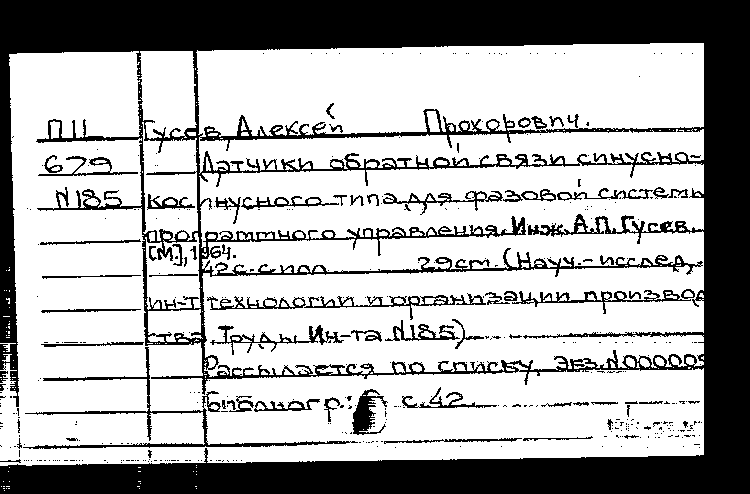 П11 Гусев, Алексей Прохорович.
679 Датчики обратной связи синусно-
N185 косинусного типа для фазовой системы
программного управления. Инж. А.П. Гусев.
[М], 1964.
42с. с илл 29см. (Науч.-исслед.
ин-т технологии и организации производ
ства. Труды Ин-та N185)
Рассылается по списку. Экз. N000005
Библиогр.: с.42.